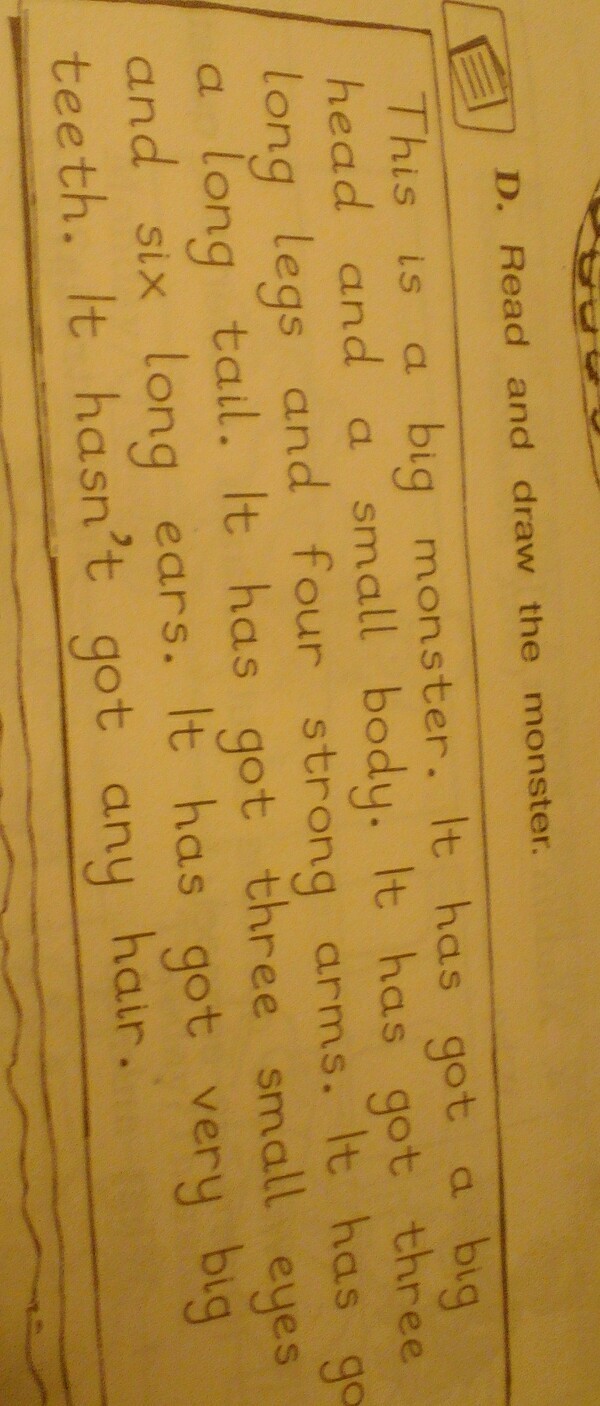 D. Read and draw the monster.
This is a big monster. It has got a big
head and a small body. It has got three
long legs and four strong arms. It has go
a long tail. It has got three small eyes
and six long ears. It has got very big
teeth. It hasn't got any hair.